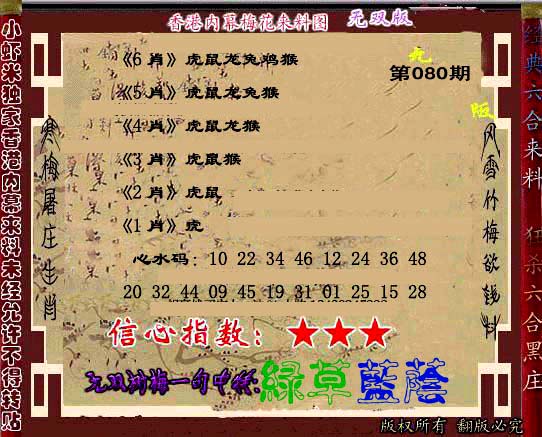 香港内幕梅花来料图 无双版
第080期
《6 肖》虎鼠龙兔鸡猴
《5 肖》虎鼠龙兔猴
《4 肖》虎鼠龙猴
《3 肖》虎鼠猴
《2 肖》虎鼠
《1 肖》虎
心水码：10 22 34 46 12 24 36 48
20 32 44 09 45 19 31 01 25 15 28
信心指数：★★★
绿草蓝荫
小虾米独家香港内幕来料未经允许不得转贴
寒梅屠庄生肖
风雪竹梅欲钱料
经典六合来料 狂杀六合黑庄
版权所有 翻版必究